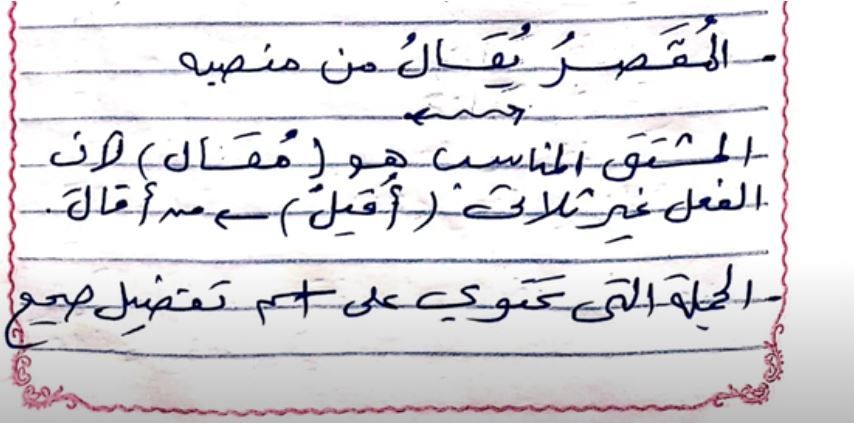 - المُقَصرُ يُقَالُ من منصبه
المشتق المناسب هو (مُقَال) لان
الفعل غير ثلاثى (أُقيلَ) ← من أقالَ.
- الجملة التى تحتوي على اسم تفضيل صحيح